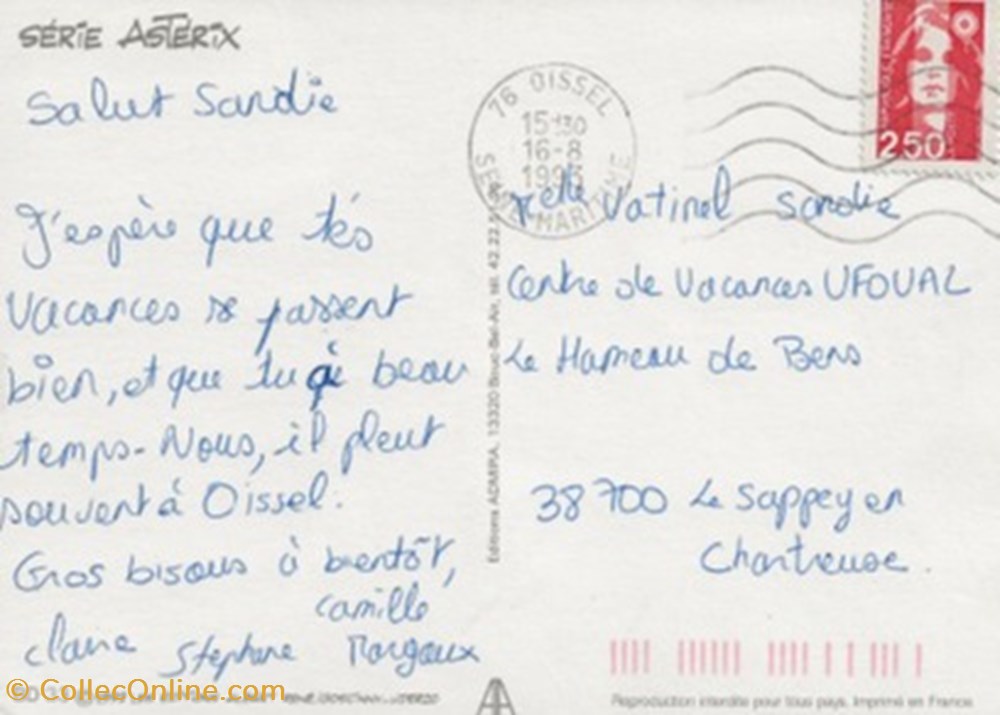 SÉRIE ASTÉRIX
Salut Sandie
J'espère que tes
vacances se passent
bien, et que tu ai beau
temps. Nous, il pleut
souvent à Oissel.
Gros bisous à bientôt,
Camille
Claire Stephane Margaux
76 OISSEL
15H30
16-8
1993
SEINE MARITIME
2,50
Melle Vatinel Sandie
Centre de Vacances UFOVAL
Le Hameau de Bens
38700 Le Sappey en
Chartreuse.
Editions ADMIRA, 13320 Bouc-Bel-Air, tél. 42.22.
Reproduction interdite pour tous pays. Imprimé en France
© CollecOnline.com